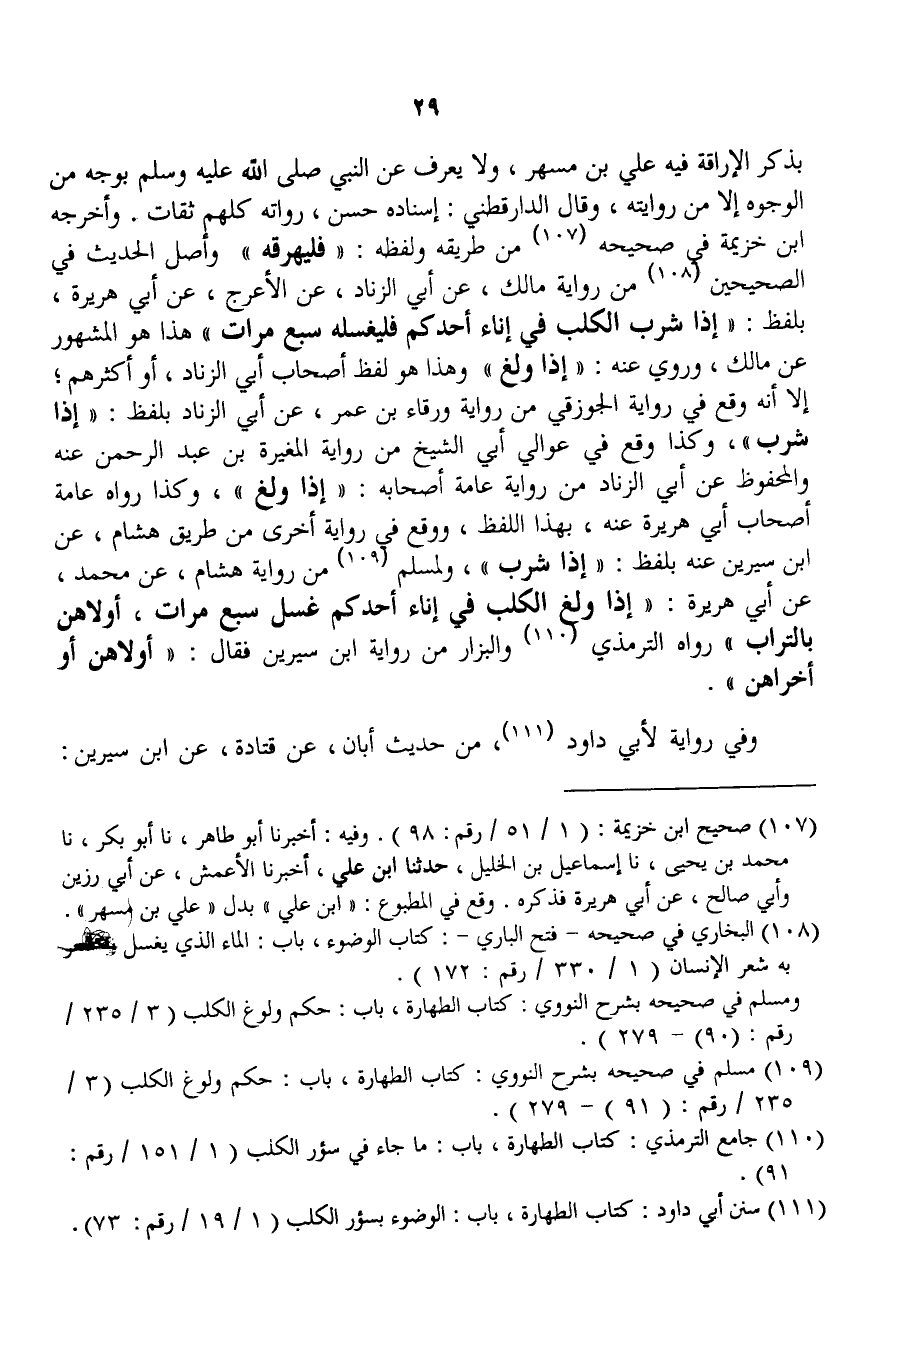 ٢٩
بذكر الإراقة فيه علي بن مسهر ، ولا يعرف عن النبي صلى الله عليه وسلم بوجه من
الوجوه إلا من روايته ، وقال الدارقطني : إسناده حسن ، رواته كلهم ثقات . وأخرجه
ابن خزيمة في صحيحه (١٠٧) من طريقه ولفظه : « فليهرقه » وأصل الحديث في
الصحيحين (١٠٨) من رواية مالك ، عن أبي الزناد ، عن الأعرج ، عن أبي هريرة ،
بلفظ : « إذا شرب الكلب في إناء أحدكم فليغسله سبع مرات » هذا هو المشهور
عن مالك ، وروي عنه : « إذا ولغ » وهذا هو لفظ أصحاب أبي الزناد ، أو أكثرهم ؛
إلا أنه وقع في رواية الجوزقي من رواية ورقاء بن عمر ، عن أبي الزناد بلفظ : « إذا
شرب» ، وكذا وقع في عوالي أبي الشيخ من رواية المغيرة بن عبد الرحمن عنه
والمحفوظ عن أبي الزناد من رواية عامة أصحابه : « إذا ولغ » ، وكذا رواه عامة
أصحاب أبي هريرة عنه ، بهذا اللفظ ، ووقع في رواية أخرى من طريق هشام ، عن
ابن سيرين عنه بلفظ : « إذا شرب » ، ولمسلم (١٠٩) من رواية هشام ، عن محمد ،
عن أبي هريرة : « إذا ولغ الكلب في إناء أحدكم غسل سبع مرات ، أولاهن
بالتراب » رواه الترمذي (١١٠) والبزار من رواية ابن سيرين فقال : « أولاهن أو
أخراهن » .
وفي رواية لأبي داود (١١١)، من حديث أبان ، عن قتادة ، عن ابن سيرين :
(١٠٧) صحيح ابن خزيمة : ( ١ / ٥١ / رقم : ٩٨ ) . وفيه : أخبرنا أبو طاهر ، نا أبو بكر ، نا
محمد بن يحيى ، نا إسماعيل بن الخليل ، حدثنا ابن علي ، أخبرنا الأعمش ، عن أبي رزين
وأبي صالح ، عن أبي هريرة فذكره . وقع في المطبوع : « ابن علي » بدل « علي بن مسهر» .
(١٠٨) البخاري في صحيحه - فتح الباري - : كتاب الوضوء ، باب : الماء الذي يغسل
به شعر الإنسان ( ١ / ٣٣٠ / رقم : ١٧٢ ) .
ومسلم في صحيحه بشرح النووي : كتاب الطهارة ، باب : حكم ولوغ الكلب ( ٣ / ٢٣٥ /
رقم : (٩٠) - ٢٧٩ ) .
(١٠٩) مسلم في صحيحه بشرح النووي : كتاب الطهارة ، باب : حكم ولوغ الكلب (٣ /
٢٣٥ / رقم : ( ٩١ ) - ٢٧٩ ) .
(١١٠) جامع الترمذي : كتاب الطهارة ، باب : ما جاء في سؤر الكلب ( ١ / ١٥١ / رقم :
٩١) .
(١١١) سنن أبي داود : كتاب الطهارة ، باب : الوضوء بسؤر الكلب ( ١ / ١٩ / رقم : ٧٣) .